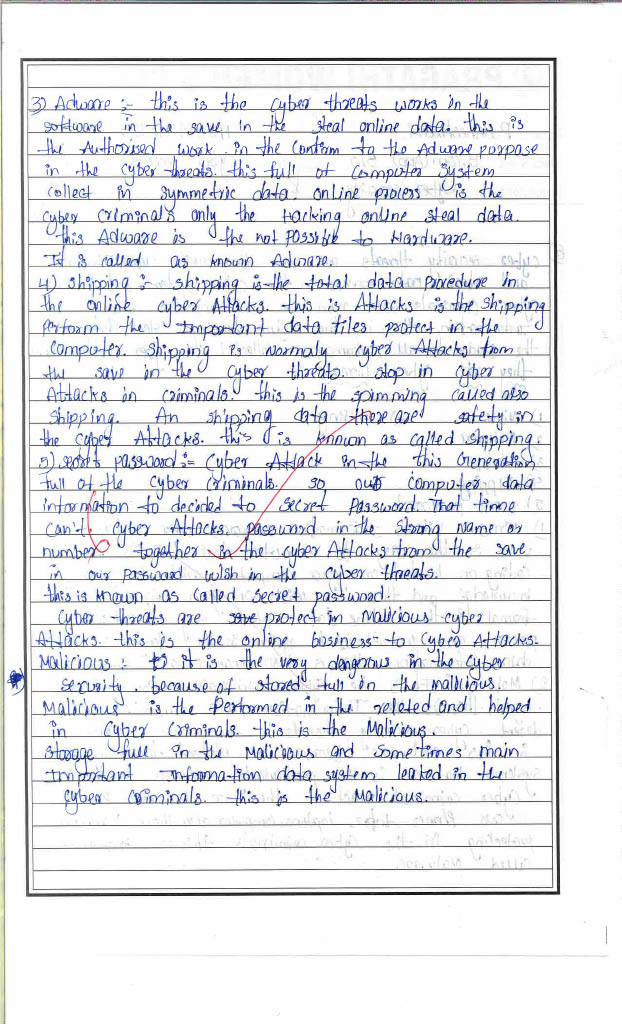 3) Adware :- this is the cyber threats works in the
software in the save in the steal online data. this is
the Authorised work. in the Confirm to the Adware purpose
in the cyber threats. this full of Computer System
collect in symmetric data. online process is the
cyber criminals only the Hacking online steal data.
this Adware is the not possible to Hardware.
It is called as known Adware.
4) shipping :- shipping is the total data procedure in
the online cyber Attacks. this is Attacks is the shipping
perform the Important data files protect in the
computer. Shipping is normaly cyber Attacks from
the save in the cyber threats. stop in cyber
Attacks in criminals. this is the spimming called also
Shipping. An shipping data there are safety in
the cyber Attacks. this is known as called shipping.
5) secret password :- Cyber Attack in the this Generation
full of the cyber criminals. so our computer data
information to decided to secret Password. That time
can't cyber Attacks. password in the strong name or
number together in the cyber Attacks from the save
in our password wish in the cyber threats.
this is known as called secret password.
Cyber threats are protect in malicious cyber
Attacks. this is the online business to Cyber Attacks.
Malicious : it is the very dangerous in the cyber
security. because of stored full in the malicious.
Malicious is the Performed in the related and helped
in Cyber Criminals. this is the Malicious.
storage full in the Malicious and Sometimes main
Important Information data system leaked in the
cyber criminals. this is the Malicious.